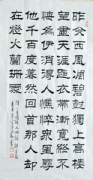 昨夜西風凋碧樹獨上高樓
望盡天涯路衣帶漸寬終不
悔為伊消得人憔悴眾裏尋
他千百度驀然回首那人却
在燈火闌珊處